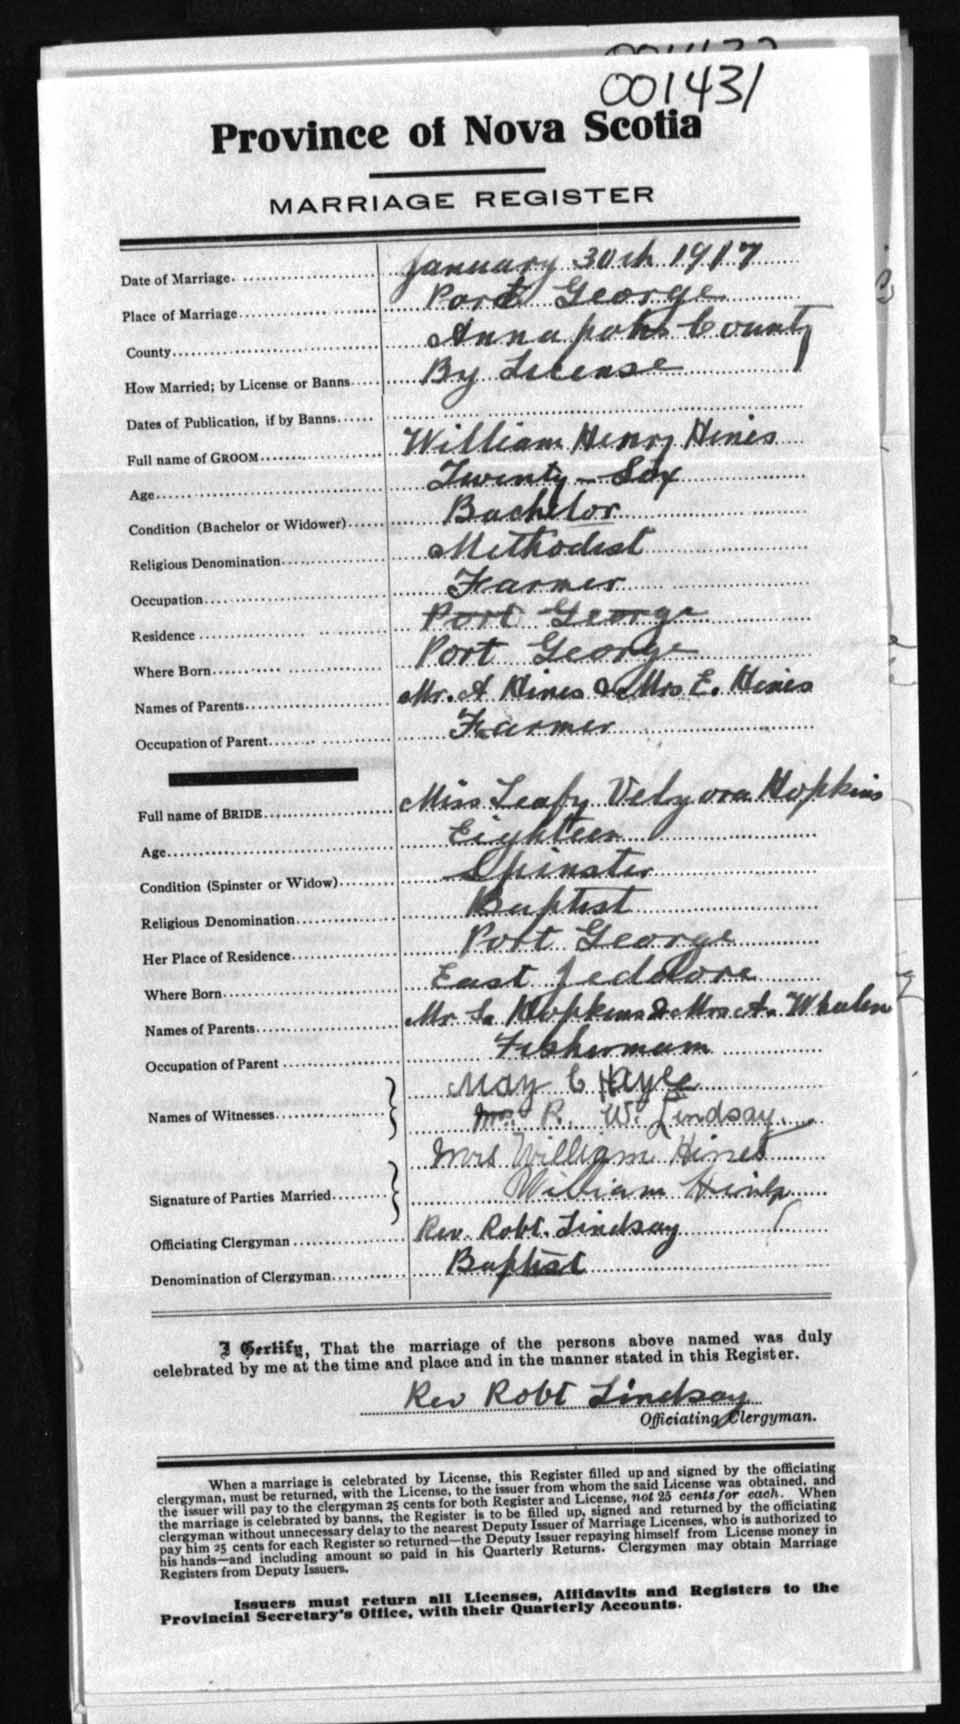 001431
Province of Nova Scotia
MARRIAGE REGISTER
Date of Marriage January 30th 1917
Place of Marriage Port George
County Annapolis County
How Married; by License or Banns By License
Dates of Publication, if by Banns
Full name of GROOM William Henry Hines
Age Twenty-Six
Condition (Bachelor or Widower) Bachelor
Religious Denomination Methodist
Occupation Farmer
Residence Port George
Where Born Port George
Names of Parents Mr. A Hines & Mrs E. Hines
Occupation of Parent Farmer
Full name of BRIDE Miss Leafy Velyora Hopkins
Age Eighteen
Condition (Spinster or Widow) Spinster
Religious Denomination Baptist
Her Place of Residence Port George
Where Born East Jeddore
Names of Parents Mr Hopkins & Mrs A. Whalen
Occupation of Parent Fishermam
Names of Witnesses May C
Mrs. R. W. Lindsay
Mrs William Hines
Signature of Parties Married William Hines
Officiating Clergyman Rev. Robt. Lindsay
Denomination of Clergyman Baptist
I Certify, That the marriage of the persons above named was duly
celebrated by me at the time and place and in the manner stated in this Register.
Rev Robt Lindsay
Officiating Clergyman.
When a marriage is celebrated by License, this Register filled up and signed by the officiating
clergyman, must be returned, with the License, to the issuer from whom the said License was obtained, and
the issuer will pay to the clergyman 25 cents for both Register and License, not 25 cents for each. When
the marriage is celebrated by banns, the Register is to be filled up, signed and returned by the officiating
clergyman without unnecessary delay to the nearest Deputy Issuer of Marriage Licenses, who is authorized to
pay him 25 cents for each Register so returned—the Deputy Issuer repaying himself from License money in
his hands—and including amount so paid in his Quarterly Returns. Clergymen may obtain Marriage
Registers from Deputy Issuers.
Issuers must return all Licenses, Affidavits and Registers to the
Provincial Secretary's Office, with their Quarterly Accounts.